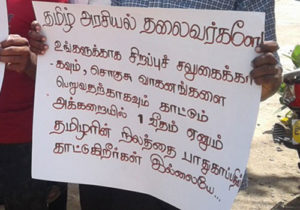 தமிழ் அரசியல் தலைவர்களே
உங்களுக்காக சிறப்புச் சலுகைக்கா-
கவும், சொகுசு வாகனங்களை
பெறுவதற்காகவும் காட்டும்
அக்கறையில் 1 வீதம் ஏனும்
தமிழரின் நிலத்தை பாதுகாப்பதில்
காட்டுகிறீர்கள் இல்லையே...